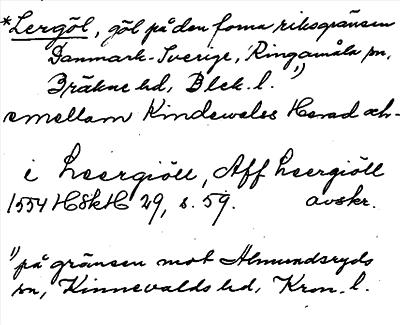 *Lergöl, göl på den forna riksgränsen
Danmark-Sverige, Ringamåla sn,
Bräkne hd, Blek. l. 1)
emellom Kindewales Herad och-
i Leergiöll, Aff Leergiöll
1554 HSkH 29, s. 59. avskr.
1) på gränsen mot Almundsryds
sn, Kinnevalds hd, Kron. l.